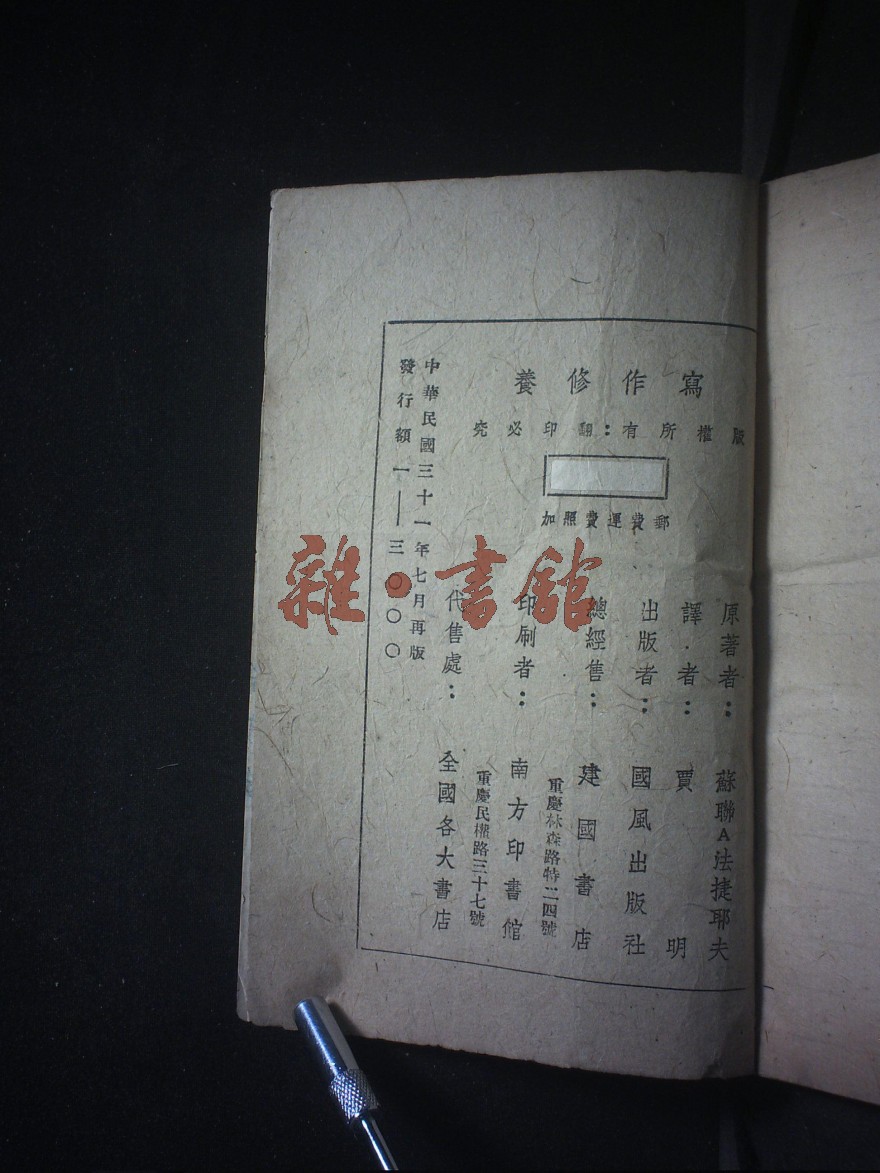 寫作修養
版權所有:翻印必究
郵費運費照加
原著者：蘇聯A法捷耶夫
譯．者：賈明
出版者：國風出版社
總經售：建國書店
重慶林森路特二四號
印刷者：南方印書館
重慶民權路三十七號
代售處：全國各大書店
中華民國三十一年七月再版
發行額一——三〇〇〇
雜·書館